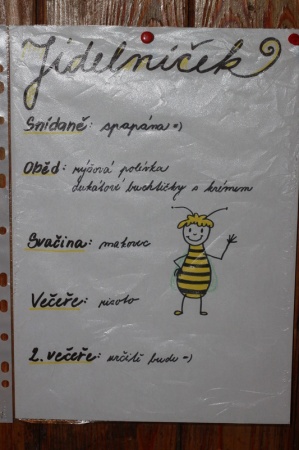 Jídelníček
Snídaně: spapána =)
Oběd: rýžová polívka
dukátové buchtičky s krémem
Svačina: matovec
Večeře: rizoto
2. večeře: určitě bude =)